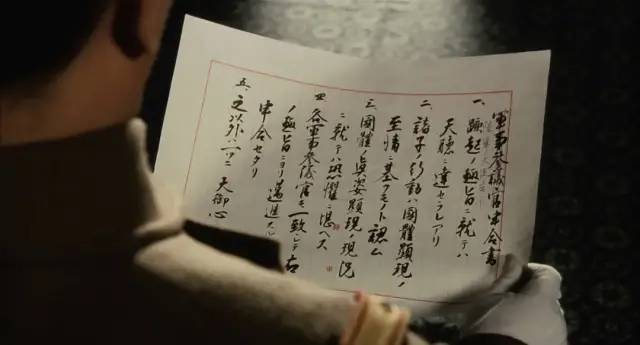 軍事参議官申合書
一、蹶起ノ趣旨ニ就テハ
天聴ニ達セラレアリ
二、諸子ノ行動ハ國體顕現ノ
至情ニ基クモノト認ム
三、國體ノ眞姿顕現ノ現況
ニ就テハ恐懼ニ堪ヘス
四、各軍事参議官モ一致シテ右
ノ趣旨ニヨリ邁進スル
申合セタリ
五、之以外ハ一ツニ 天御心